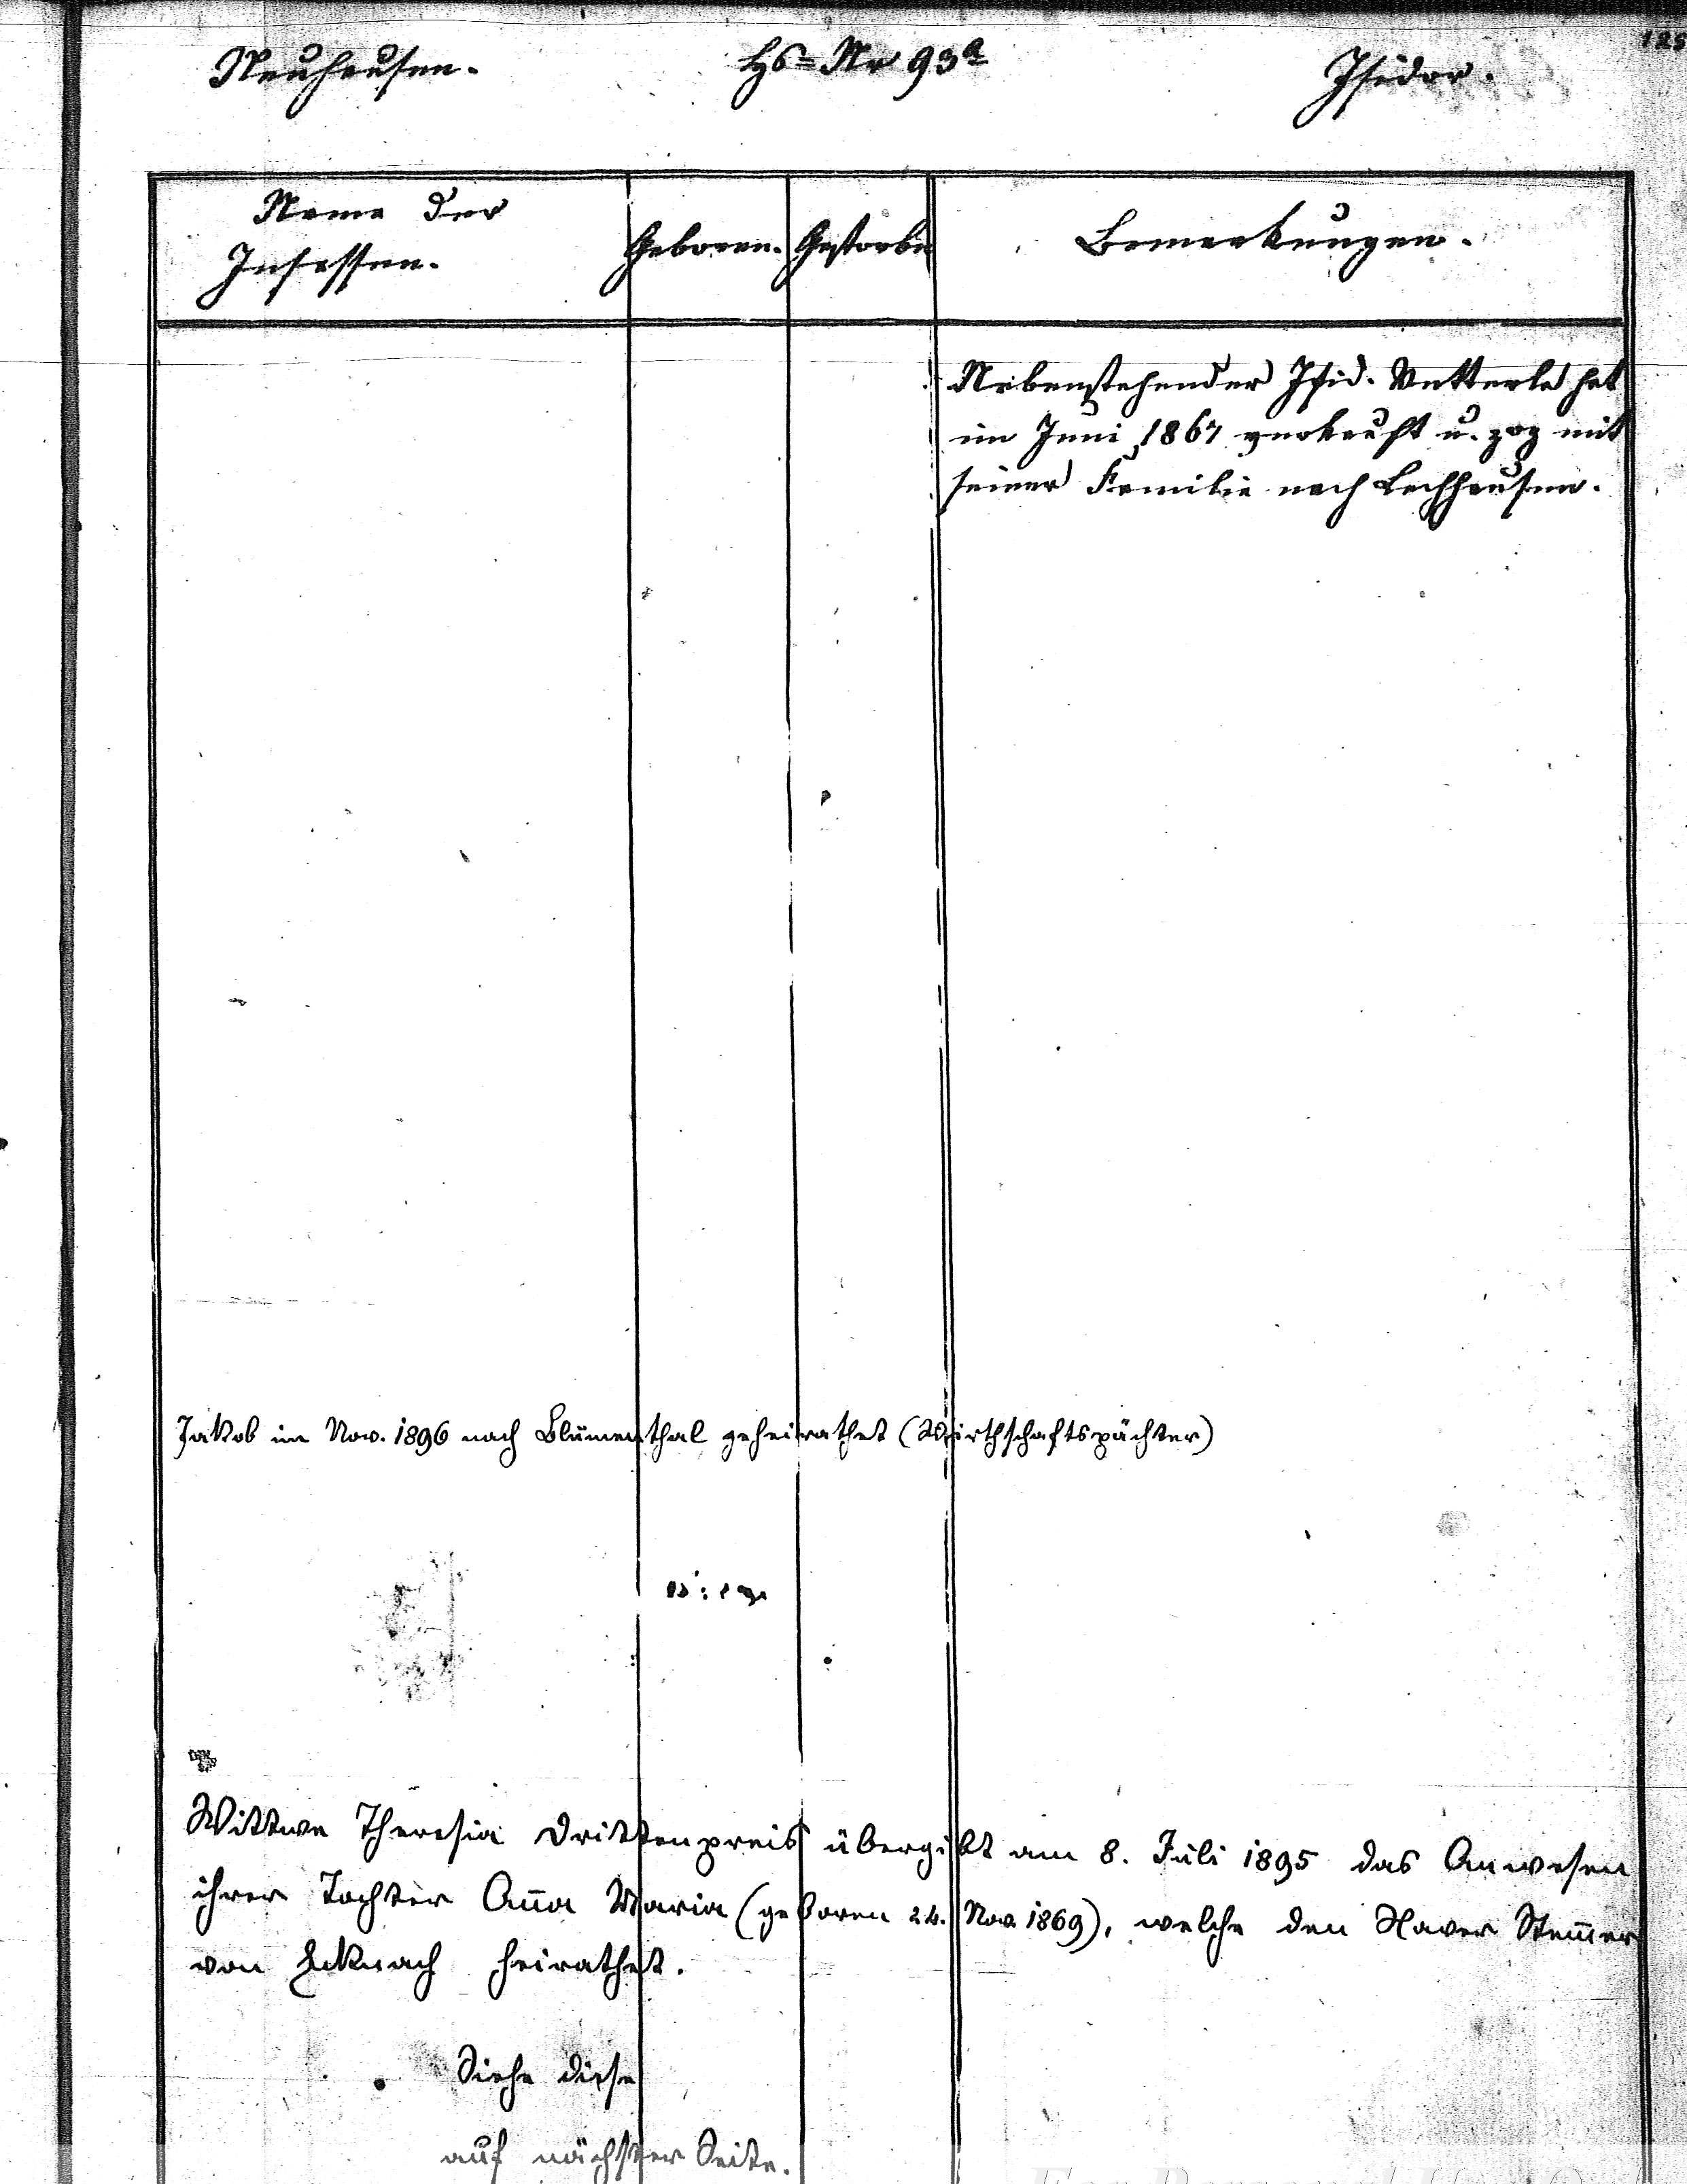 Neuhausen.
Hs=Nr 93a
Isidor.
125
Name der
Insassen.
Geboren.
Gestorben
Bemerkungen.
Nebenstehender Isid. Vetterle hat
im Juni 1867 verkauft u. zog mit
seiner Familie nach Lechhausen.
Jakob im Nov. 1896 nach Blumenthal geheirathet (Wirthschaftspächter)
Wittwe Theresia Drittenpreis übergibt am 8. Juli 1895 das Anwesen
ihrer Tochter Anna Maria (geboren 24. Nov. 1869), welche den Xaver Stemmer
von Ecknach heirathet.
Siehe diese
auf nächster Seite.